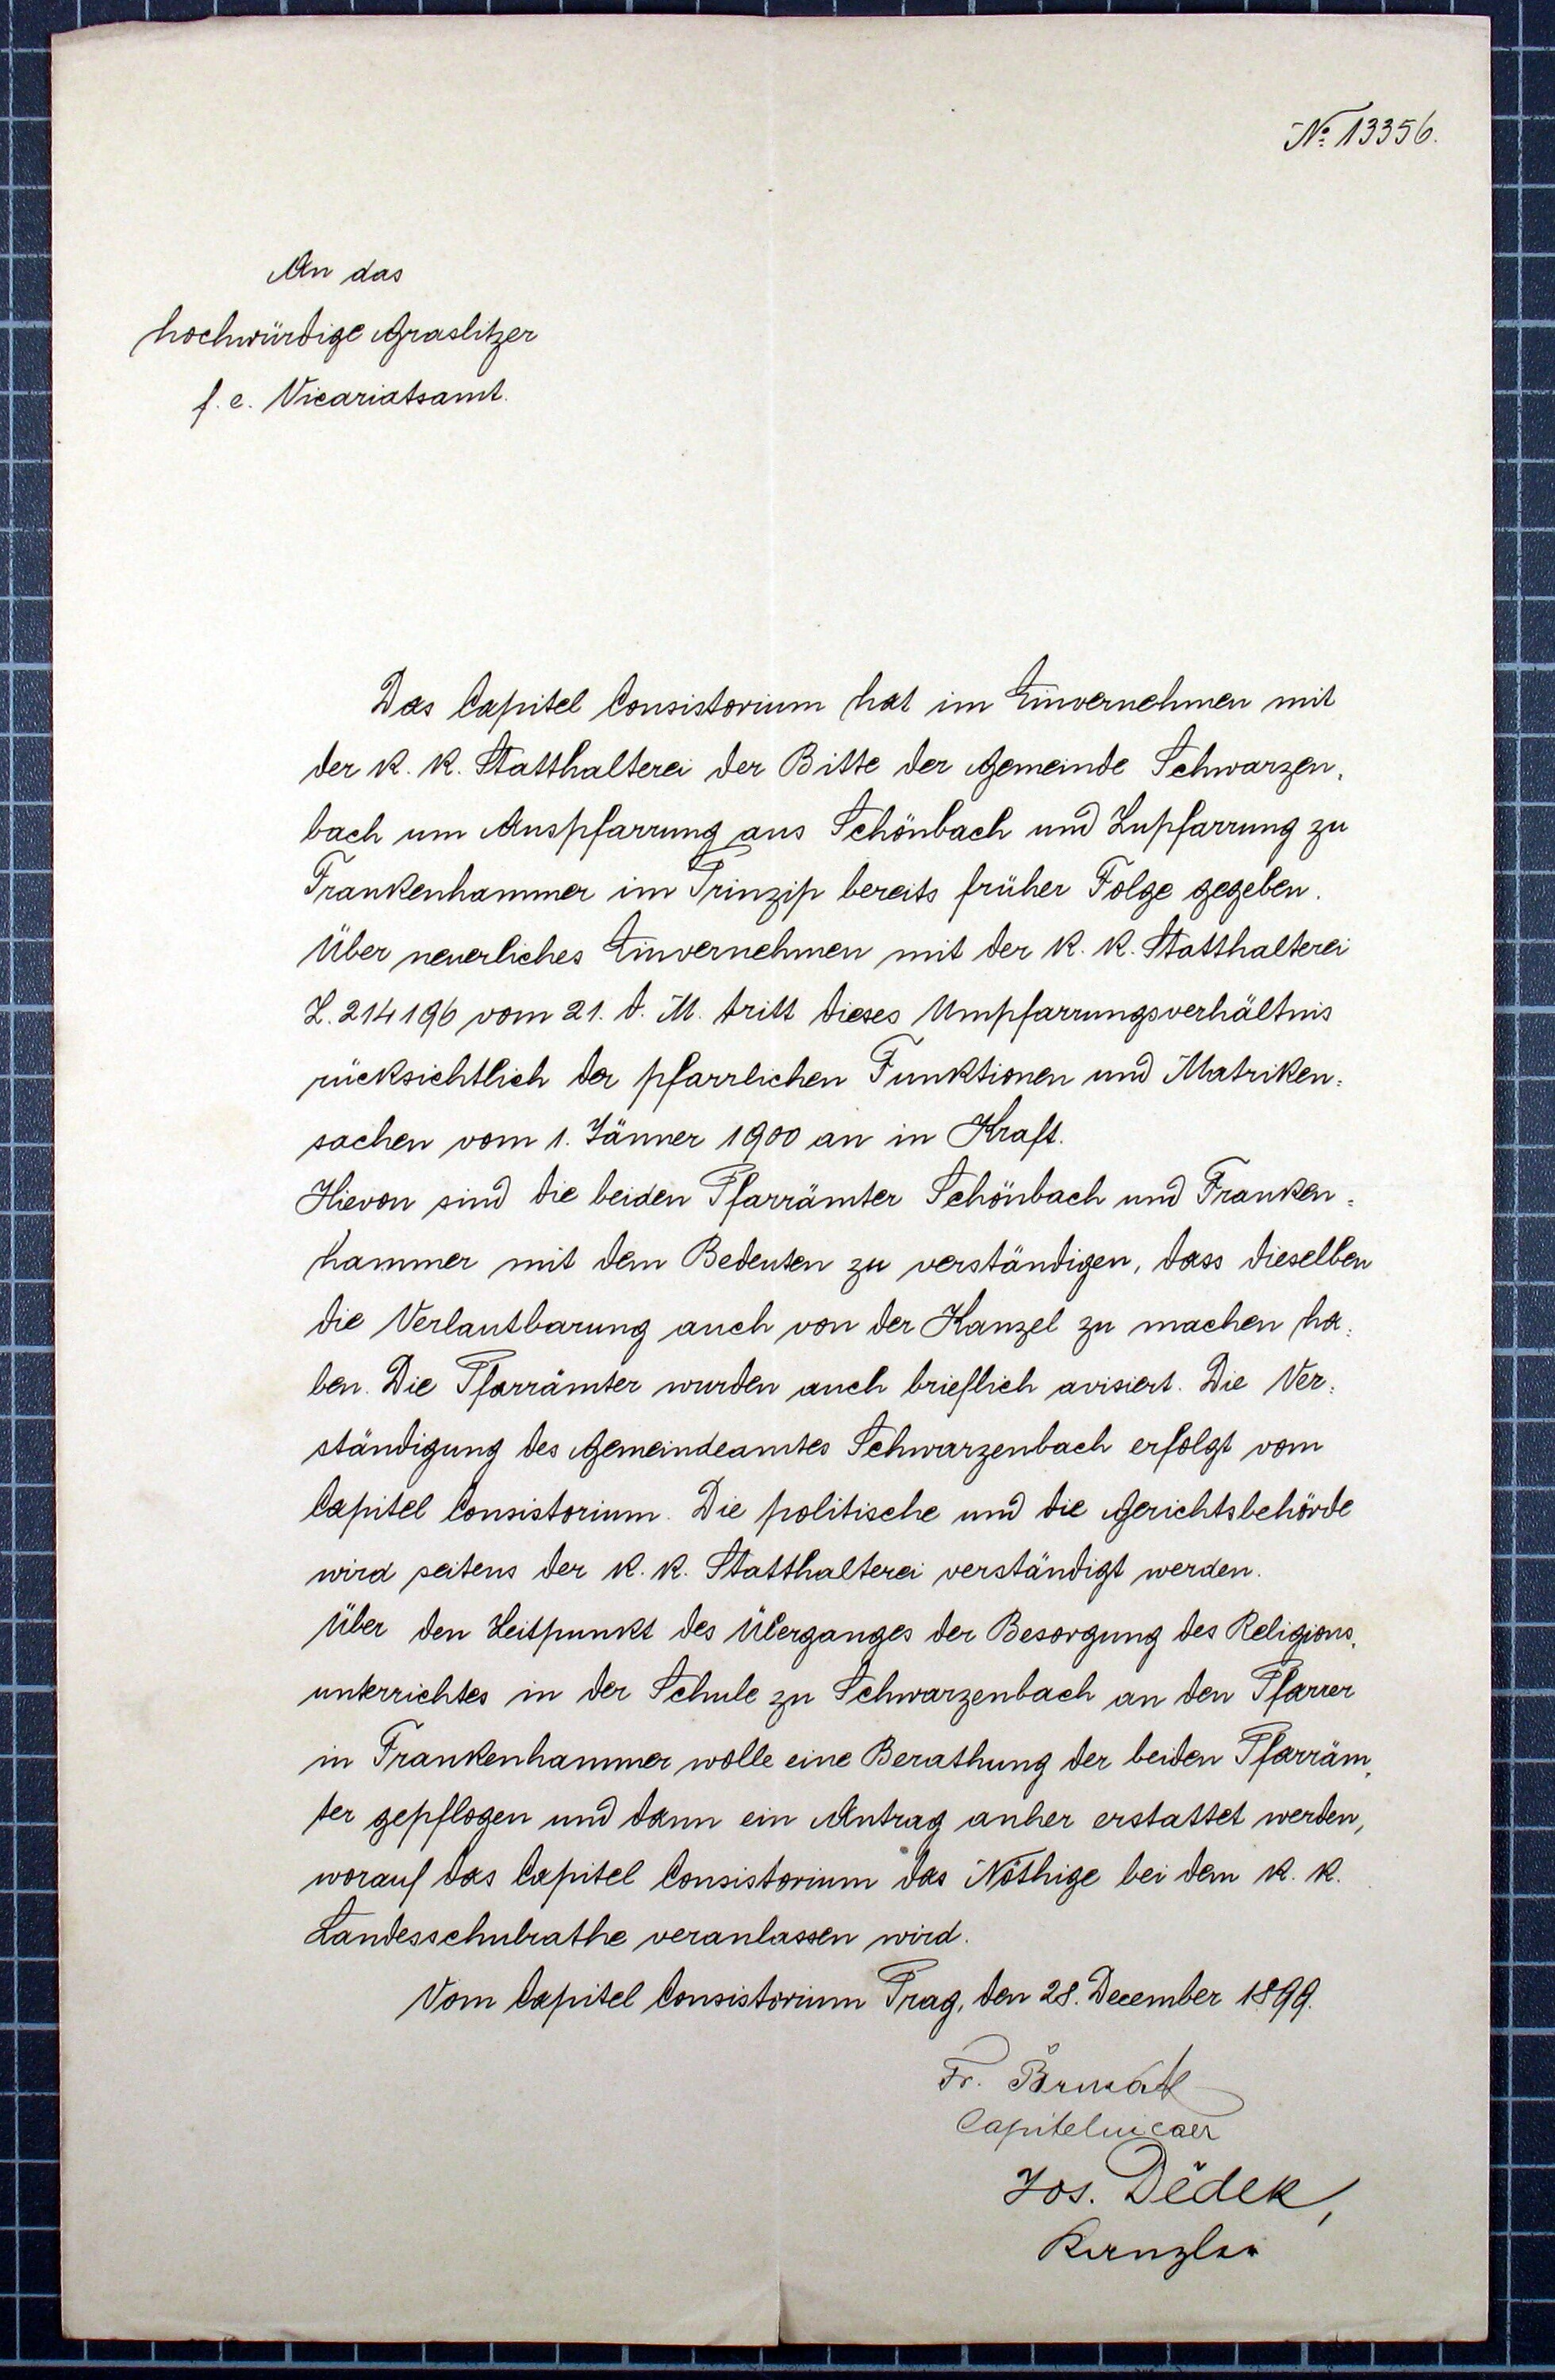 No. 13356.
An das
hochwürdige Graslitzer
f. e. Vicariatsamt.
Das Capitel Consistorium hat im Einvernehmen mit
der k. k. Statthalterei der Bitte der Gemeinde Schwarzen=
bach um Auspfarrung aus Schönbach und Zupfarrung zu
Frankenhammer im Prinzip bereits früher Folge gegeben.
Über neuerliches Einvernehmen mit der k. k. Statthalterei
Z. 214196 vom 21. d. M. tritt dieses Umpfarrungsverhältnis
rücksichtlich der pfarrlichen Funktionen und Matriken=
sachen vom 1. Jänner 1900 an in Kraft.
Hievon sind die beiden Pfarrämter Schönbach und Franken=
hammer mit dem Bedeuten zu verständigen, dass dieselben
die Verlautbarung auch von der Kanzel zu machen ha=
ben. Die Pfarrämter wurden auch brieflich avisiert. Die Ver=
ständigung des Gemeindeamtes Schwarzenbach erfolgt vom
Capitel Consistorium. Die politische und die Gerichtsbehörde
wird seitens der k. k. Statthalterei verständigt werden.
Über den Zeitpunkt des Überganges der Besorgung des Religions=
unterrichtes in der Schule zu Schwarzenbach an den Pfarrer
in Frankenhammer wolle eine Berathung der beiden Pfarräm=
ter gepflogen und dann ein Antrag anher erstattet werden,
worauf das Capitel Consistorium das Nöthige bei dem k. k.
Landesschulrathe veranlassen wird.
Vom Capitel Consistorium Prag, den 28. December 1899.
Fr.
Capitelvicaer
Jos. Dědek,
Kanzler